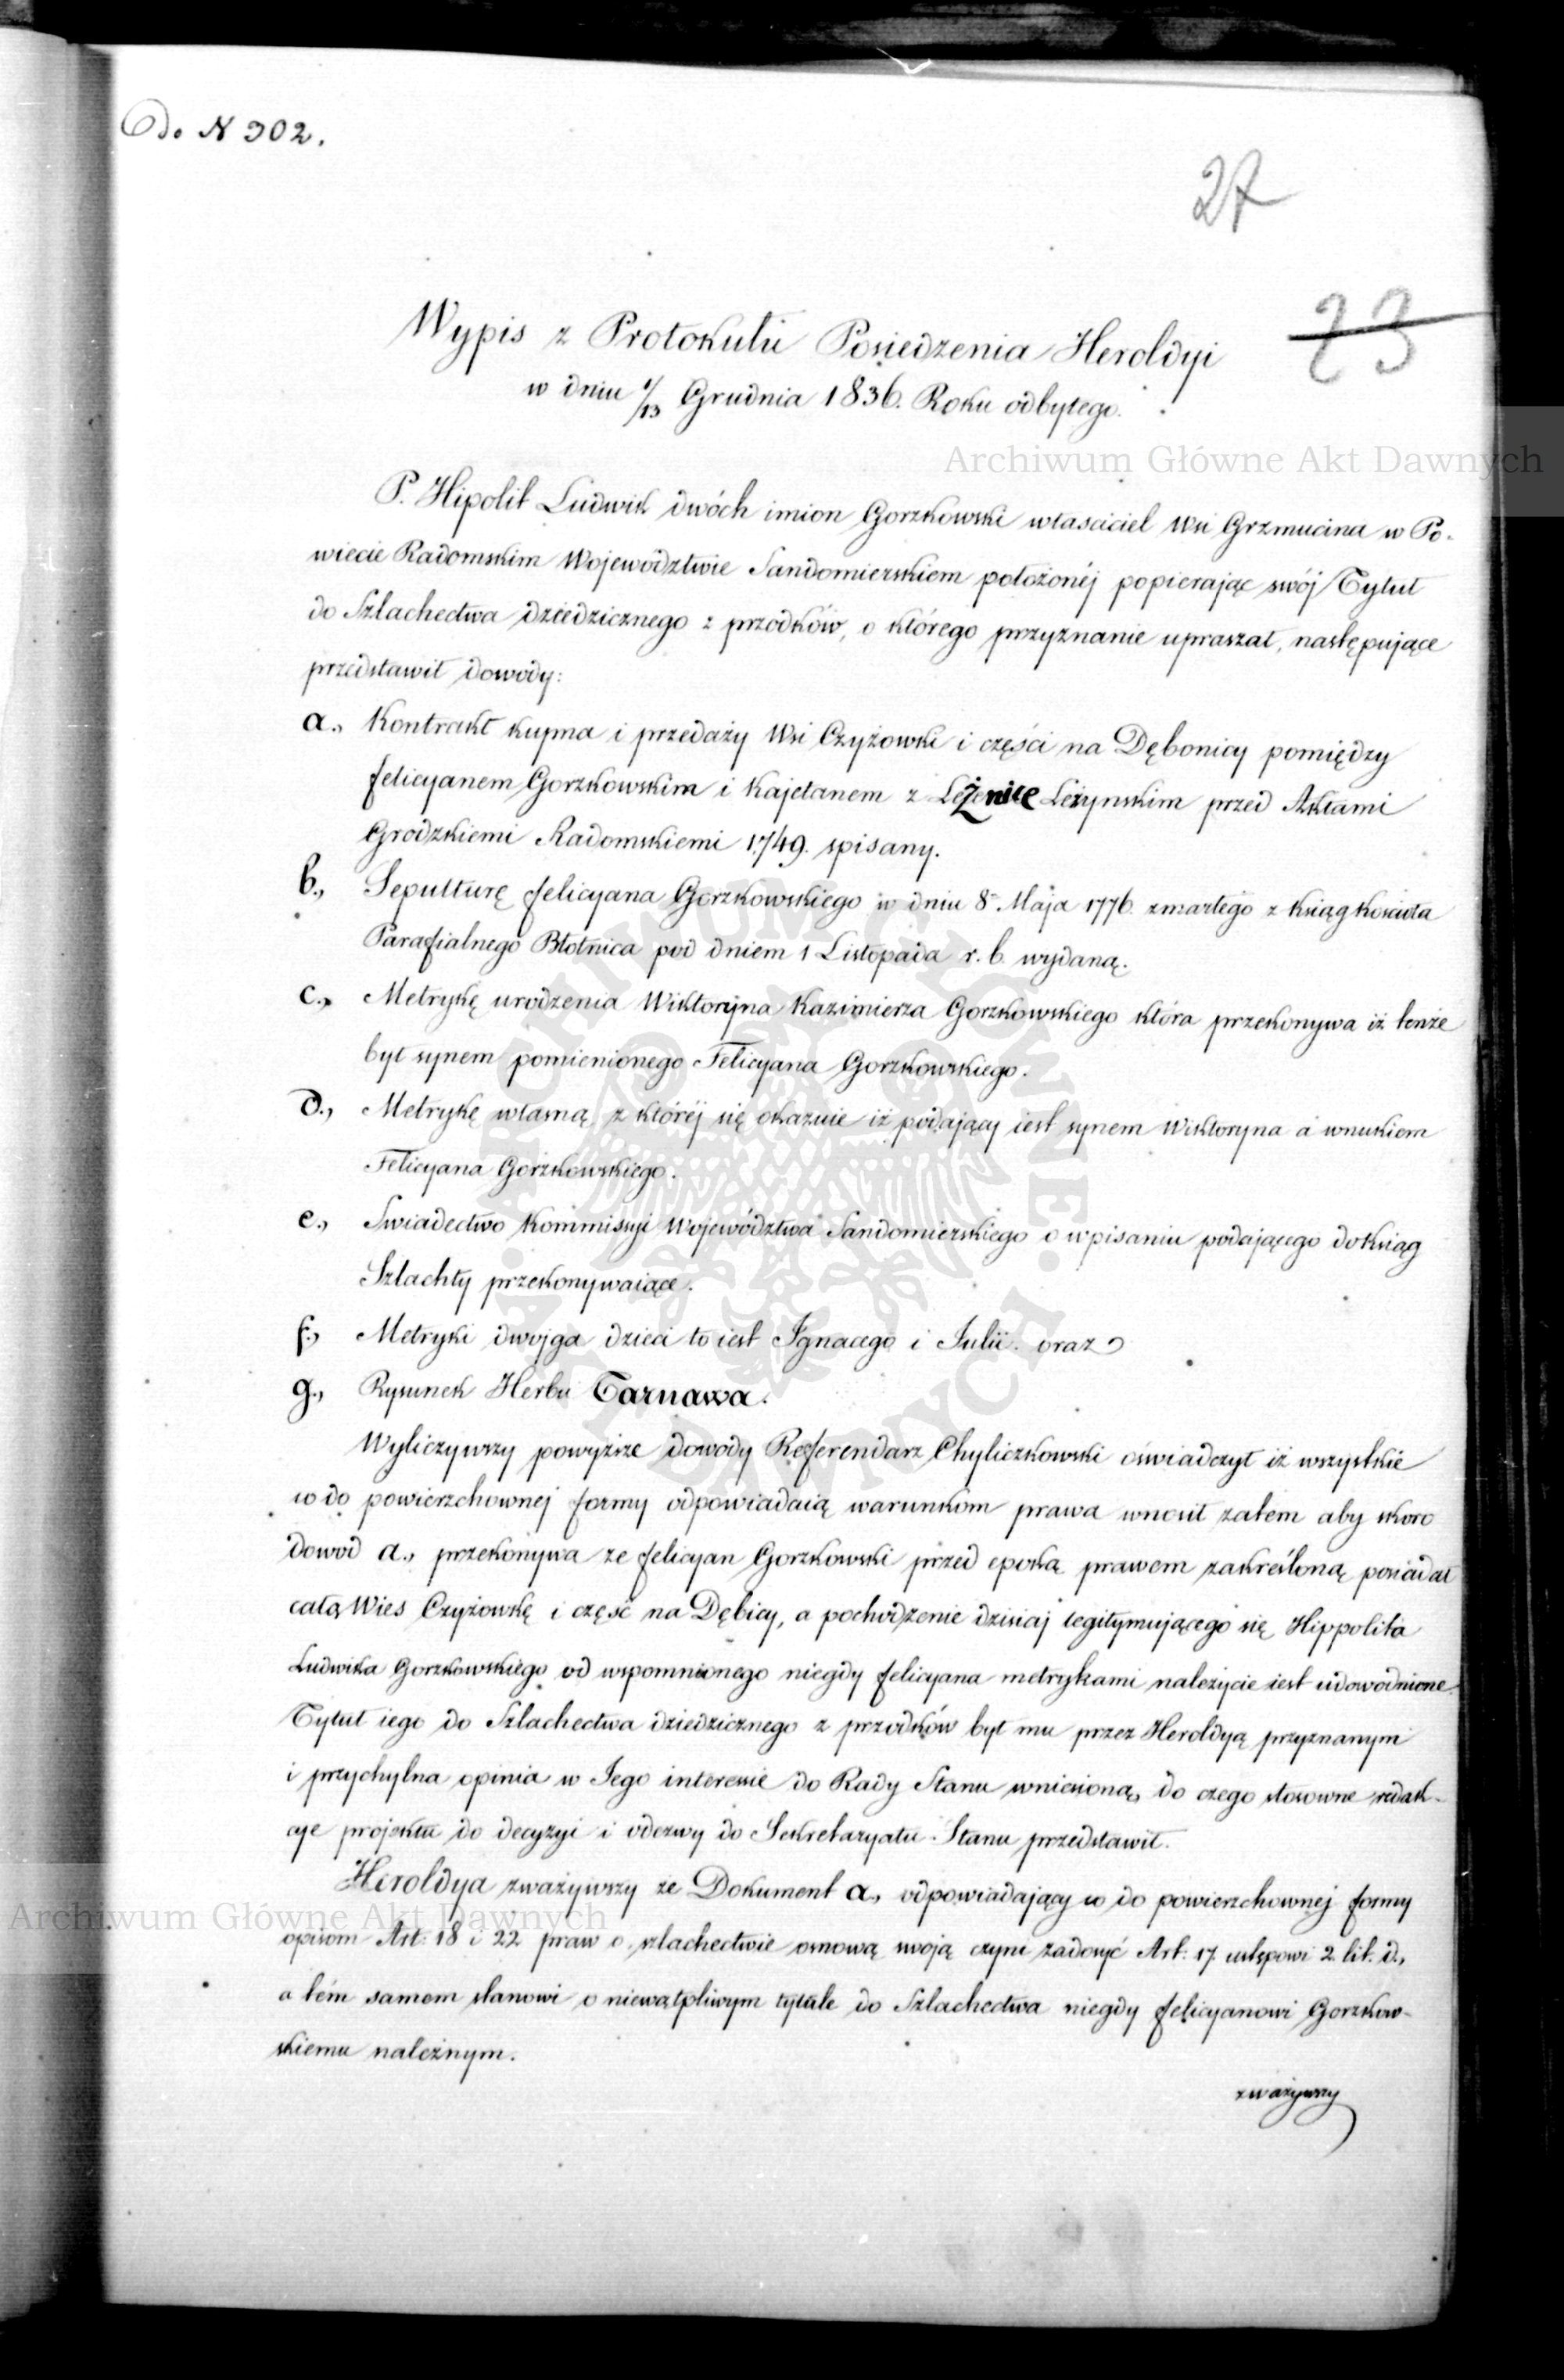 Do N 302.
27
23
Wypis z Protokułu Posiedzenia Heroldyi
w dniu 1/13 Grudnia 1836. Roku odbytego.
Archiwum Główne Akt Dawnych
P. Hipolit Ludwik dwóch imion Gorzkowski własciciel Wsi Grzmucina w Po-
wiecie Radomskim Województwie Sandomierskiem położonéj popierając swój Tytuł
do Szlachectwa dziedzicznego z przodków, o którego przyznanie upraszał, następujące
przedstawił dowody:
a., Kontrakt kupna i przedaży Wsi Czyżowki i części na Dębonicy pomiędzy
Felicyanem Gorzkowskim i Kajetanem z Leżenice Leżynskim przed Aktami
Grodzkiemi Radomskiemi 1749. spisany.
b., Sepulturę Felicyana Gorzkowskiego w dniu 8 Maja 1776. zmarłego z ksiąg kościoła
Parafialnego Błotnica pod dniem 1 Listopada r. b. wydaną.
c., Metrykę urodzenia Wiktoryna Kazimierza Gorzkowskiego która przekonywa iż tenże
był synem pomienionego Felicyana Gorzkowskiego.
d., Metrykę własną, z któréj się okazuie iż podający iest synem Wiktoryna a wnukiem
Felicyana Gorzkowskiego.
e., Swiadectwo Kommissyi Województwa Sandomierskiego o wpisaniu podającego do ksiąg
Szlachty przekonywaiące.
f., Metryki dwojga dzieci to iest Ignacego i Julii. oraz
g., Rysunek Herbu Tarnawa.
Wyliczywszy powyższe dowody Referendarz Chyliczkowski oświadczył iż wszystkie
co do powierzchownej formy odpowiadaią warunkom prawa wnosił zatem aby skoro
dowod a., przekonywa ze Felicyan Gorzkowski przed epoką prawem zakreśloną posiadał
całą Wies Czyżowkę i część na Dębicy, a pochodzenie dzisiaj legitymującego się Hippolita
Ludwika Gorzkowskiego od wspomnionego niegdy Felicyana metrykami należycie iest udowodnione
Tytuł iego do Szlachectwa dziedzicznego z przodków był mu przez Heroldyą przyznanym
i przychylna opinia w Jego interessie do Rady Stanu wniesioną, do czego stosowne redak-
cye projektu do decyzyi i odezwy do Sekretaryatu Stanu przedstawił.
Heroldya zważywszy że Dokument a., odpowiadający co do powierzchownej formy
Archiwum Główne Akt Dawnych
opisom Art: 18 i 22 praw o szlachectwie osnową swoją czyni zadosyć Art: 17. ustępowi 2. lit. d.,
a tém samem stanowi o niewątpliwym tytule do Szlachectwa niegdy Felicyanowi Gorzkow-
skiemu należnym.
zważywszy